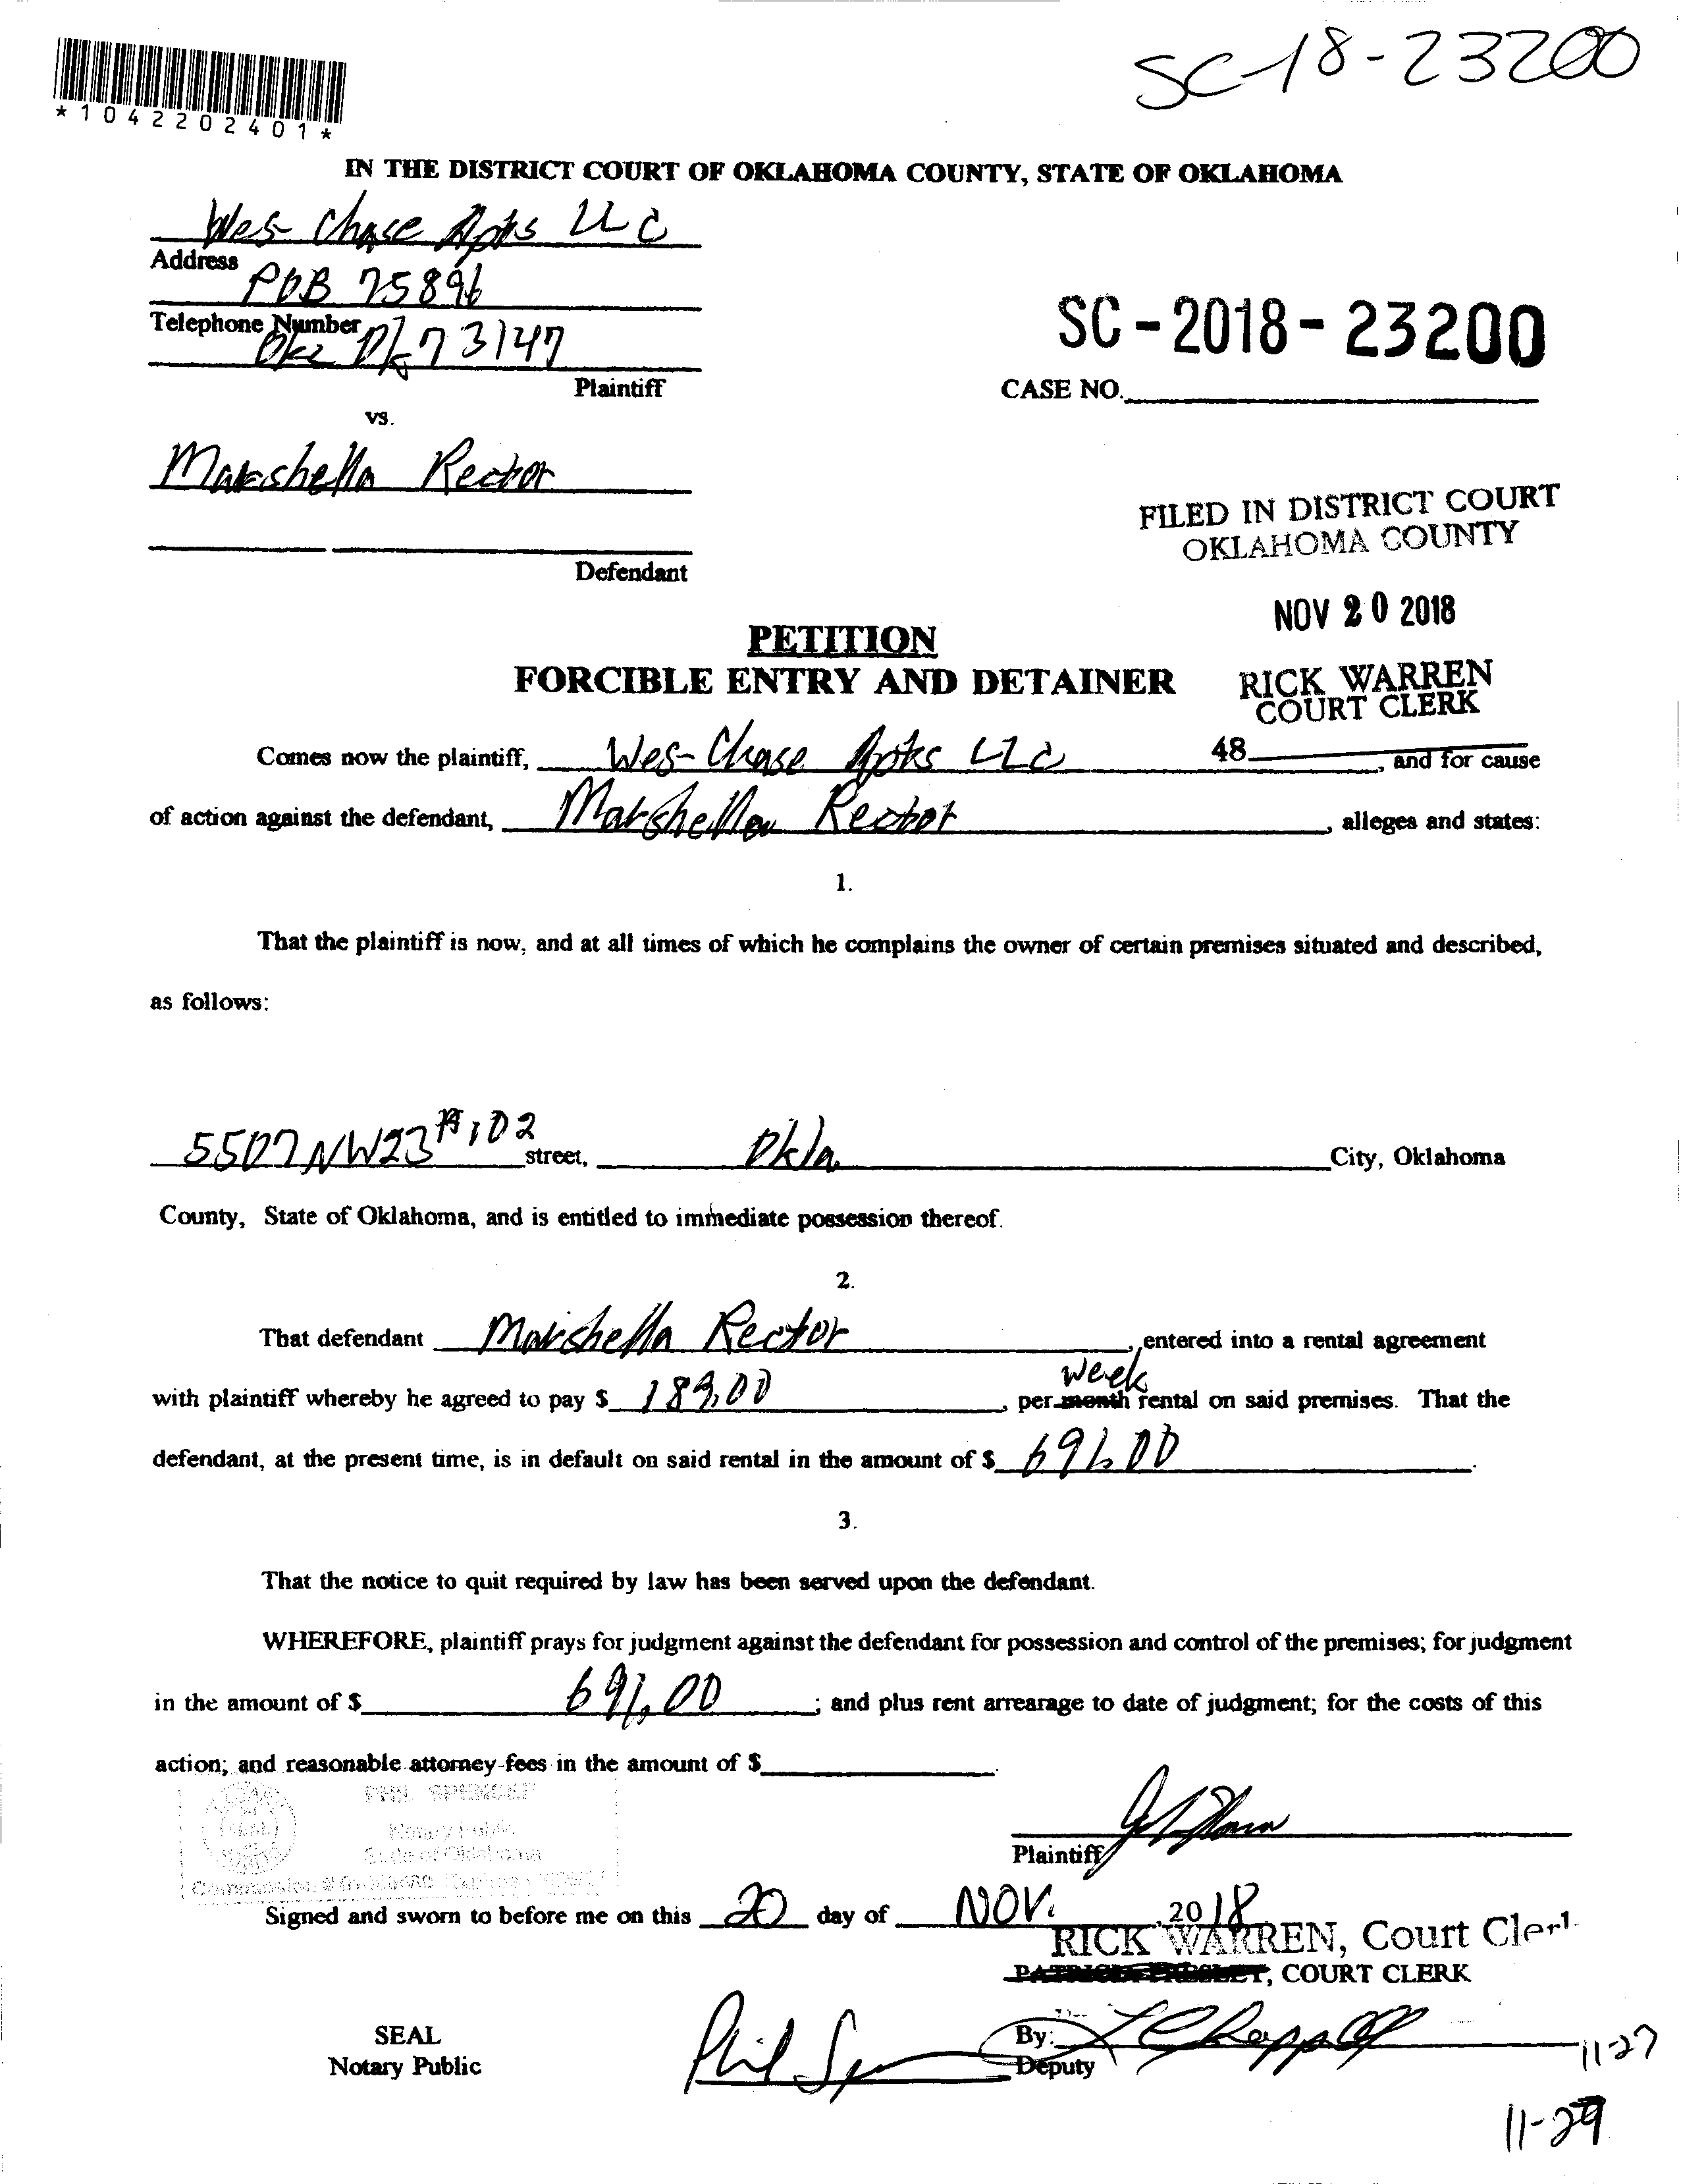 SC-18-23200
*1042202401*
IN THE DISTRICT COURT OF OKLAHOMA COUNTY, STATE OF OKLAHOMA
Wes-Chase Apts LLC
Address
POB 75896
Telephone Number
Okc Ok 73147
Plaintiff
SC-2018-23200
CASE NO.
vs.
Marshella Rector
Defendant
FILED IN DISTRICT COURT
OKLAHOMA COUNTY
NOV 20 2018
RICK WARREN
COURT CLERK
48
PETITION
FORCIBLE ENTRY AND DETAINER
Comes now the plaintiff, Wes-Chase Apts LLC, and for cause
of action against the defendant, Marshella Rector, alleges and states:
1.
That the plaintiff is now, and at all times of which he complains the owner of certain premises situated and described,
as follows:
5507 NW23 #102 street, Okla City, Oklahoma
County, State of Oklahoma, and is entitled to immediate possession thereof.
2.
That defendant Marshella Rector, entered into a rental agreement
week
with plaintiff whereby he agreed to pay $ 189.00, per month rental on said premises. That the
defendant, at the present time, is in default on said rental in the amount of $ 691.00.
3.
That the notice to quit required by law has been served upon the defendant.
WHEREFORE, plaintiff prays for judgment against the defendant for possession and control of the premises; for judgment
in the amount of $ 691.00; and plus rent arrearage to date of judgment; for the costs of this
action; and reasonable attorney fees in the amount of $.
PHIL SPENCER
Notary Public
State of Oklahoma
Plaintiff
Signed and sworn to before me on this 20 day of NOV., 2018
RICK WARREN, Court Clerk
, COURT CLERK
SEAL
Notary Public
By:
Deputy
11-27
11-29